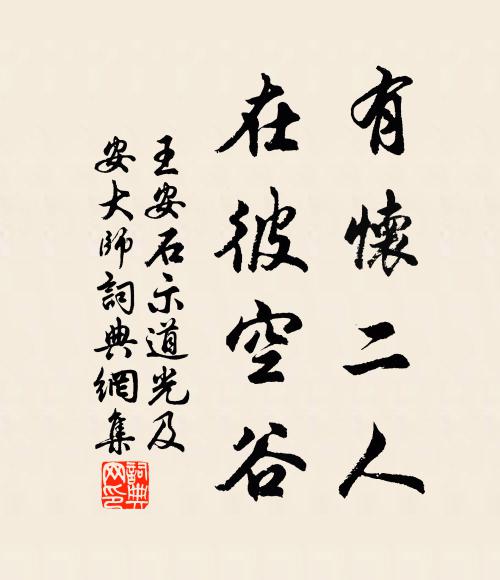 有懷二人
在彼空谷
王安石示道光及
安大師詞典網集
詞典
网印